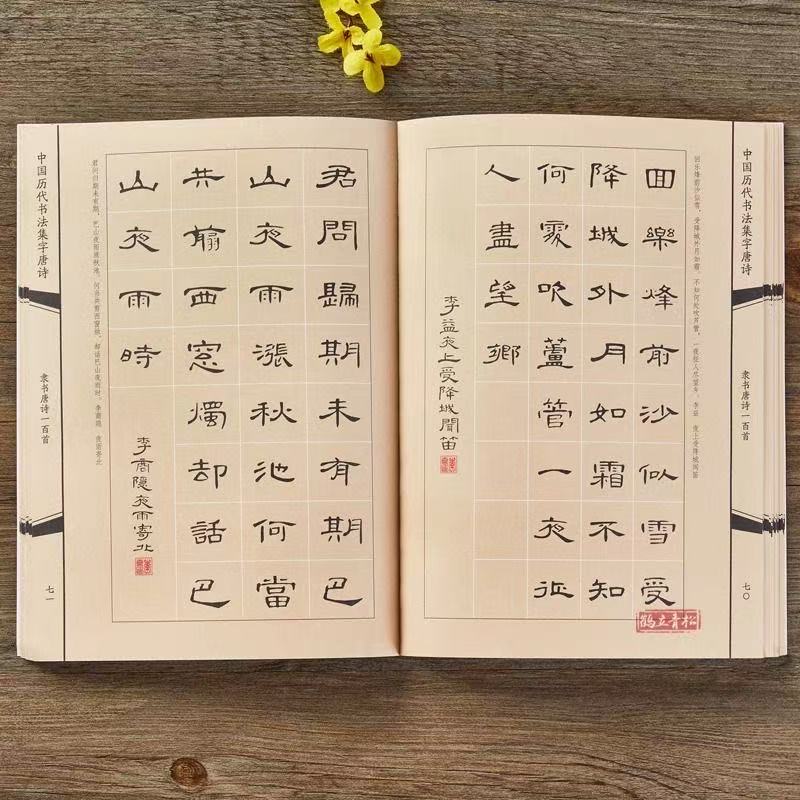 中国历代书法集字唐诗
隶书唐诗一百首
七〇
回乐烽前沙似雪，受降城外月如霜。不知何处吹芦管，一夜征人尽望乡。李益 夜上受降城闻笛
回樂烽前沙似雪受
降城外月如霜不知
何處吹蘆管一夜征
人盡望鄉
李益夜上受降城聞笛
鹤立青松
君問歸期未有期巴
山夜雨漲秋池何當
共翦西窓燭却話巴
山夜雨時
李商隱夜雨寄北
君问归期未有期，巴山夜雨涨秋池。何当共剪西窗烛，却话巴山夜雨时。李商隐 夜雨寄北
中国历代书法集字唐诗
隶书唐诗一百首
七一